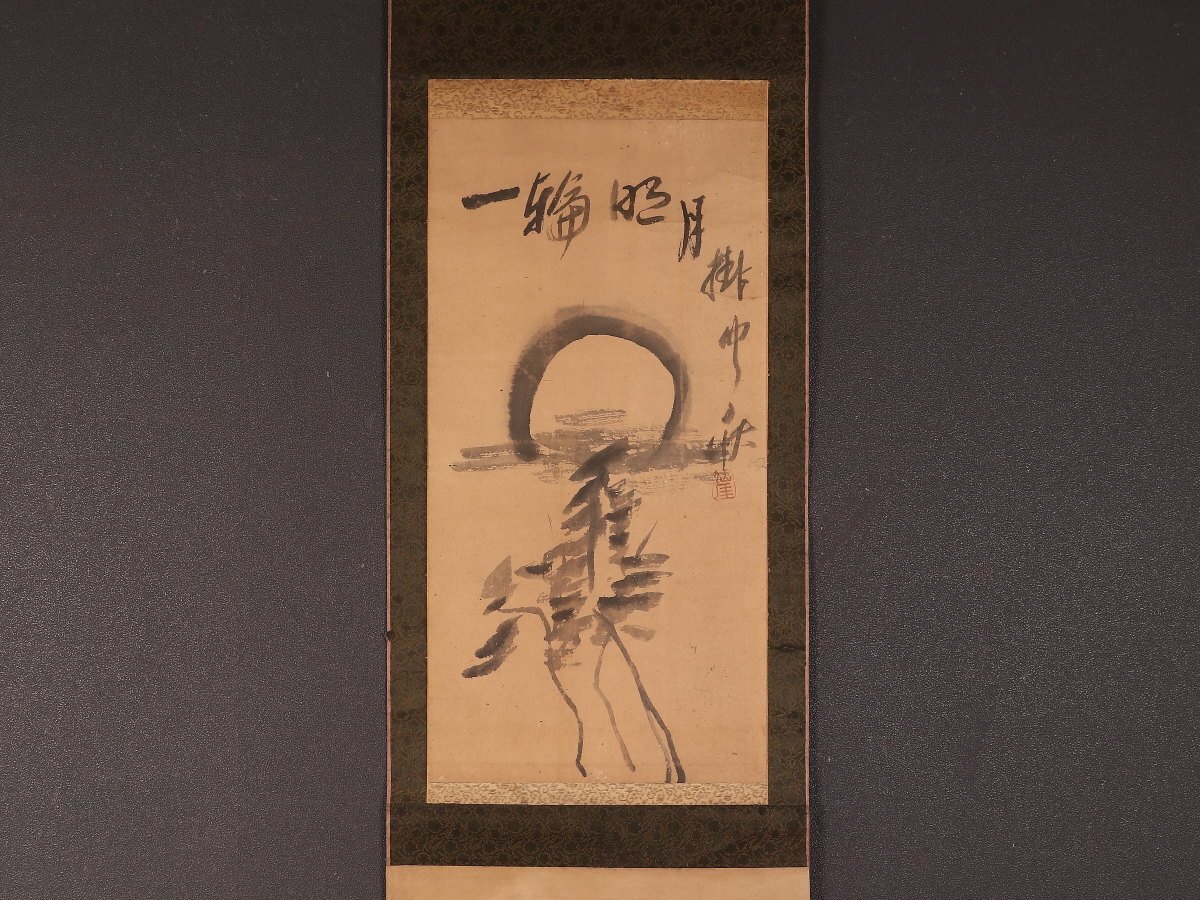 一輪明月掛中秋